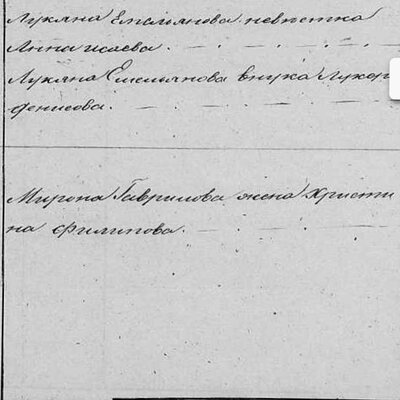 Лукяна Емельянова невестка
Анна исаева
Лукяна Емельянова внука Лукер
денисова.
Мирона Гаврилова жена Христи
на Филипова.